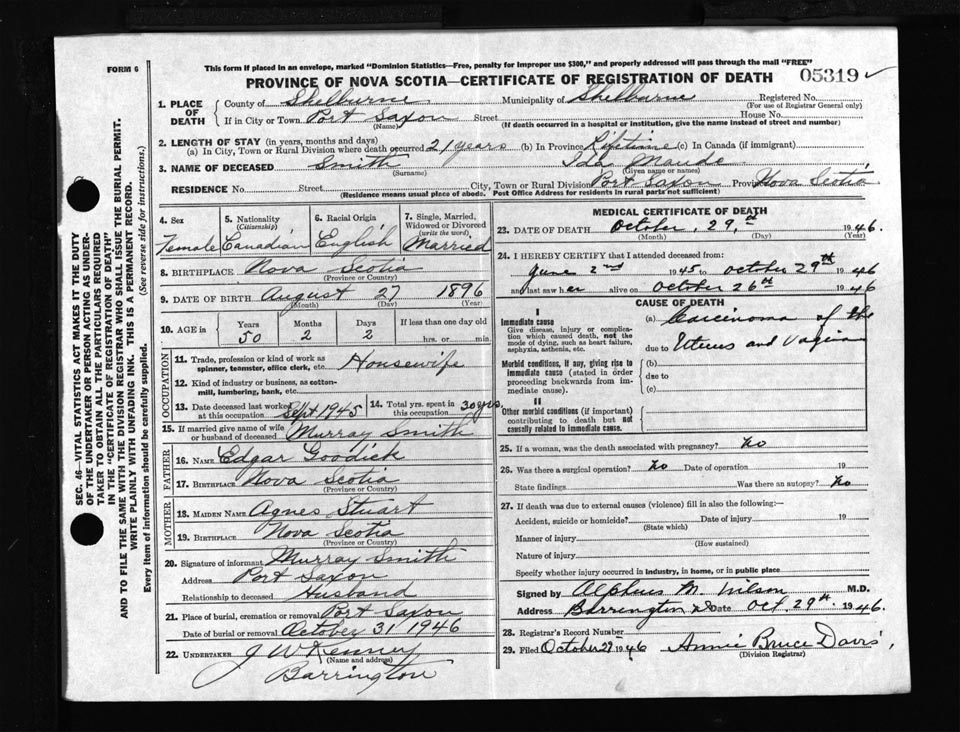 FORM 6
This form if placed in an envelope, marked "Dominion Statistics—Free, penalty for improper use $300," and properly addressed will pass through the mail "FREE"
PROVINCE OF NOVA SCOTIA—CERTIFICATE OF REGISTRATION OF DEATH 05319
1. PLACE OF DEATH County of Shelburne Municipality of Shelburne Registered No.
(For use of Registrar General only)
If in City or Town Port Saxon Street House No.
(Name) (If death occurred in a hospital or institution, give the name instead of street and number)
2. LENGTH OF STAY (in years, months and days)
(a) In City, Town or Rural Division where death occurred 21 years (b) In Province Lifetime (c) In Canada (if immigrant)
3. NAME OF DECEASED Smith Ida Maude
(Surname) (Given name or names)
RESIDENCE No. Street City, Town or Rural Division Port Saxon Province Nova Scotia
(Residence means usual place of abode. Post Office Address for residents in rural parts not sufficient)
4. Sex Female
5. Nationality (Citizenship) Canadian
6. Racial Origin English
7. Single, Married, Widowed or Divorced (write the word) Married
8. BIRTHPLACE Nova Scotia
(Province or Country)
9. DATE OF BIRTH August 27 1896
(Month) (Day) (Year)
10. AGE in Years Months Days If less than one day old
50 2 2 hrs. or min.
OCCUPATION
11. Trade, profession or kind of work as spinner, teamster, office clerk, etc. Housewife
12. Kind of industry or business, as cotton-mill, lumbering, bank, etc.
13. Date deceased last worked at this occupation Sept 1945
14. Total yrs. spent in this occupation 30 yrs.
15. If married give name of wife or husband of deceased Murray Smith
FATHER
16. NAME Edgar Goodick
17. BIRTHPLACE Nova Scotia
(Province or Country)
MOTHER
18. MAIDEN NAME Agnes Stuart
19. BIRTHPLACE Nova Scotia
(Province or Country)
20. Signature of informant Murray Smith
Address Port Saxon
Relationship to deceased Husband
21. Place of burial, cremation or removal Port Saxon
Date of burial or removal October 31 1946
22. UNDERTAKER J W Kenney
(Name and address)
Barrington
MEDICAL CERTIFICATE OF DEATH
23. DATE OF DEATH October, 29, 1946.
(Month) (Day) (Year)
24. I HEREBY CERTIFY that I attended deceased from:
June 2nd 1945 to October 29th 1946
and last saw her alive on October 26th 1946
CAUSE OF DEATH
I
Immediate cause
Give disease, injury or complication which caused death, not the mode of dying, such as heart failure, asphyxia, asthenia, etc.
(a) Carcinoma of the
due to Uterus and Vagina
Morbid conditions, if any, giving rise to immediate cause (stated in order proceeding backwards from immediate cause).
(b)
due to
(c)
II
Other morbid conditions (if important) contributing to death but not causally related to immediate cause.
25. If a woman, was the death associated with pregnancy? No
26. Was there a surgical operation? No Date of operation 19
State findings Was there an autopsy? No
27. If death was due to external causes (violence) fill in also the following:—
Accident, suicide or homicide? Date of injury 19
(State which)
Manner of injury
(How sustained)
Nature of injury
Specify whether injury occurred in industry, in home, or in public place
Signed by Alpheus M. Wilson M.D.
Address Barrington Date Oct. 29th 1946.
28. Registrar's Record Number
29. Filed October 29 1946 Annie Bruce Davis
(Division Registrar)
SEC. 46—VITAL STATISTICS ACT MAKES IT THE DUTY
OF THE UNDERTAKER OR PERSON ACTING AS UNDER-
TAKER TO OBTAIN ALL THE PARTICULARS REQUIRED
IN THE "CERTIFICATE OF REGISTRATION OF DEATH"
AND TO FILE THE SAME WITH THE DIVISION REGISTRAR WHO SHALL ISSUE THE BURIAL PERMIT.
WRITE PLAINLY WITH UNFADING INK. THIS IS A PERMANENT RECORD.
Every item of information should be carefully supplied. (See reverse side for instructions.)